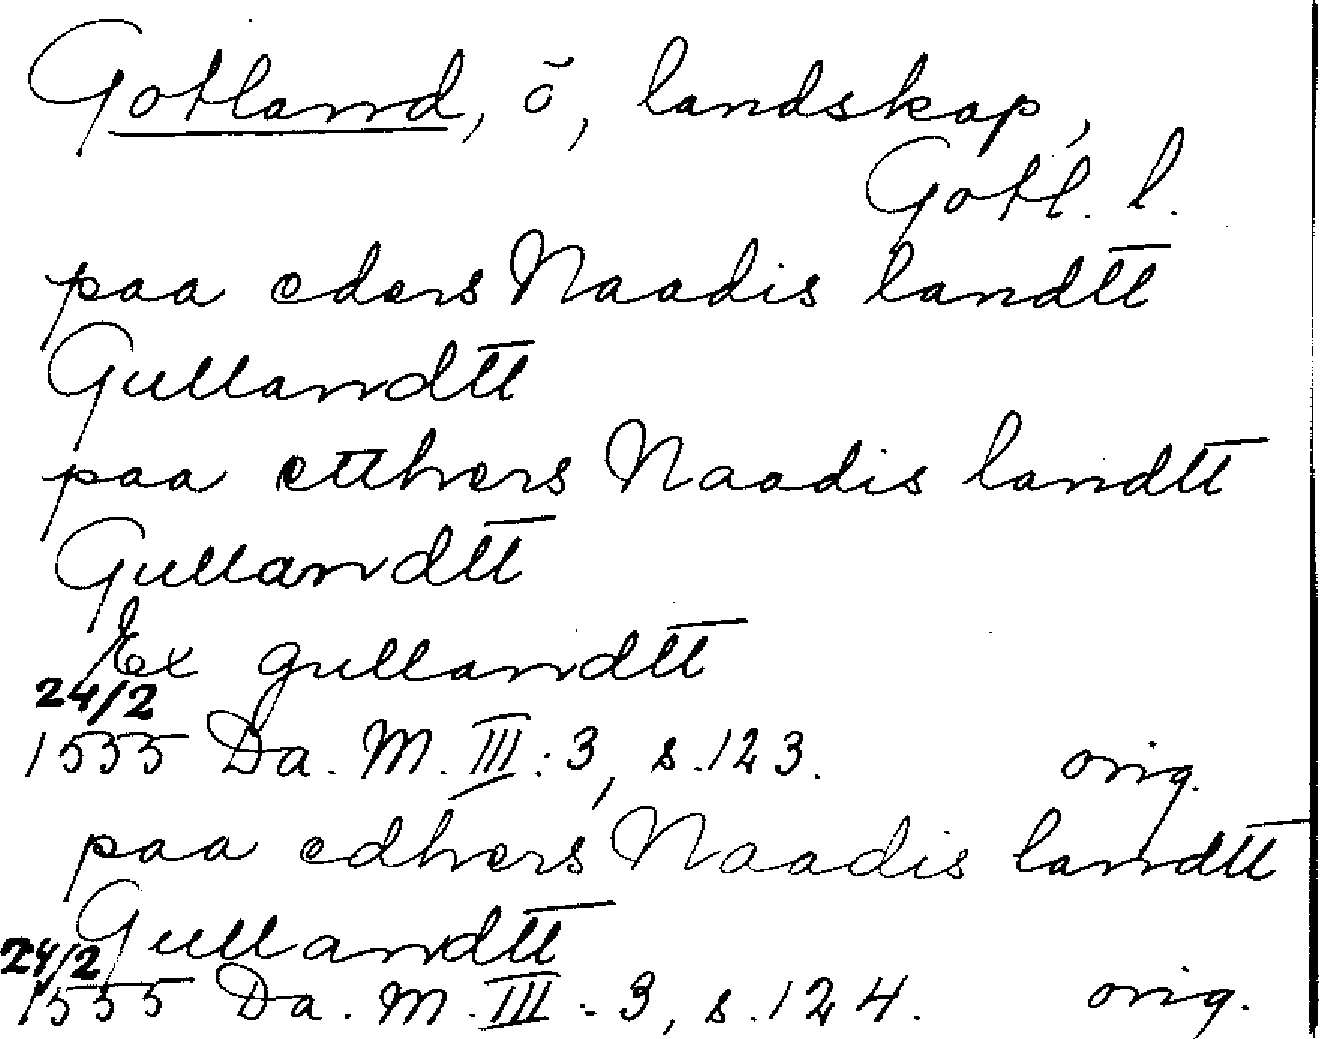 Gotland, ö, landskap,
Gotl. l.
paa eders Naadis landtt
Gullandtt
paa etthers Naadis landtt
Gullandtt
Ex gullandtt
24/2
1555 Da. M. III: 3, s. 123. orig.
paa edhers Naadis landtt
Gullandtt
24/2
1555 Da. M. III: 3, s. 124. orig.